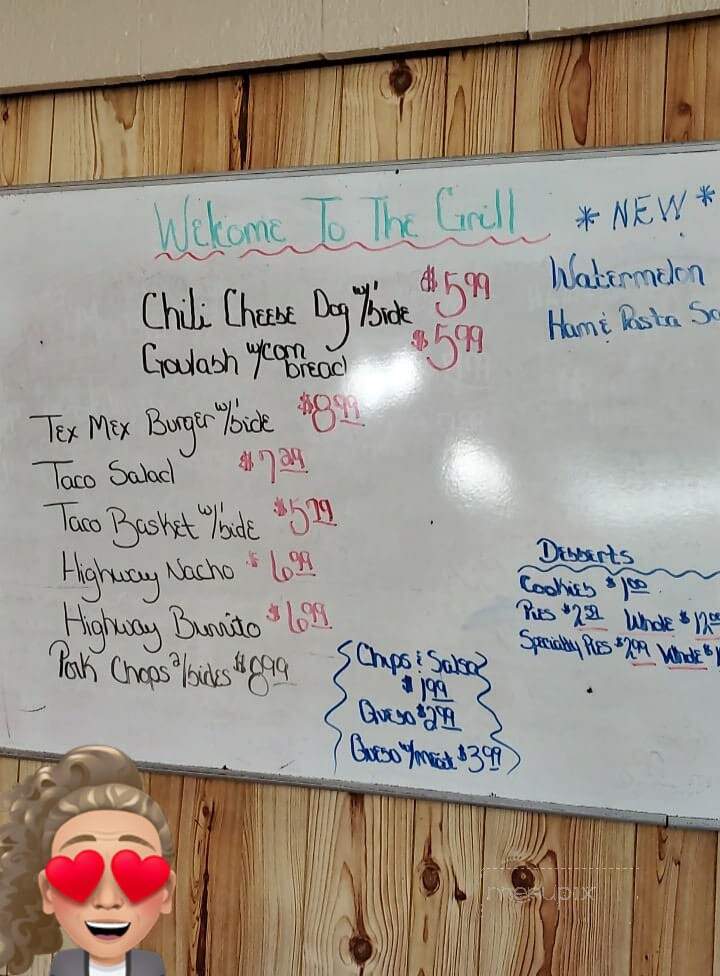 Welcome To The Grill
* NEW *
Watermelon
Ham & Pasta
Chili Cheese Dog w/1side $5.99
Goulash w/corn bread $5.99
Tex Mex Burger w/1side $8.99
Taco Salad $7.29
Taco Basket w/1side $5.79
Highway Nacho $6.99
Highway Burrito $6.99
Pork Chops 2/sides $8.99
Chips & Salsa
$1.99
Queso $2.99
Queso w/meat $3.99
Desserts
Cookies $1.00
Pies Whole
Specialty Pies $2.99 Whole
menupix